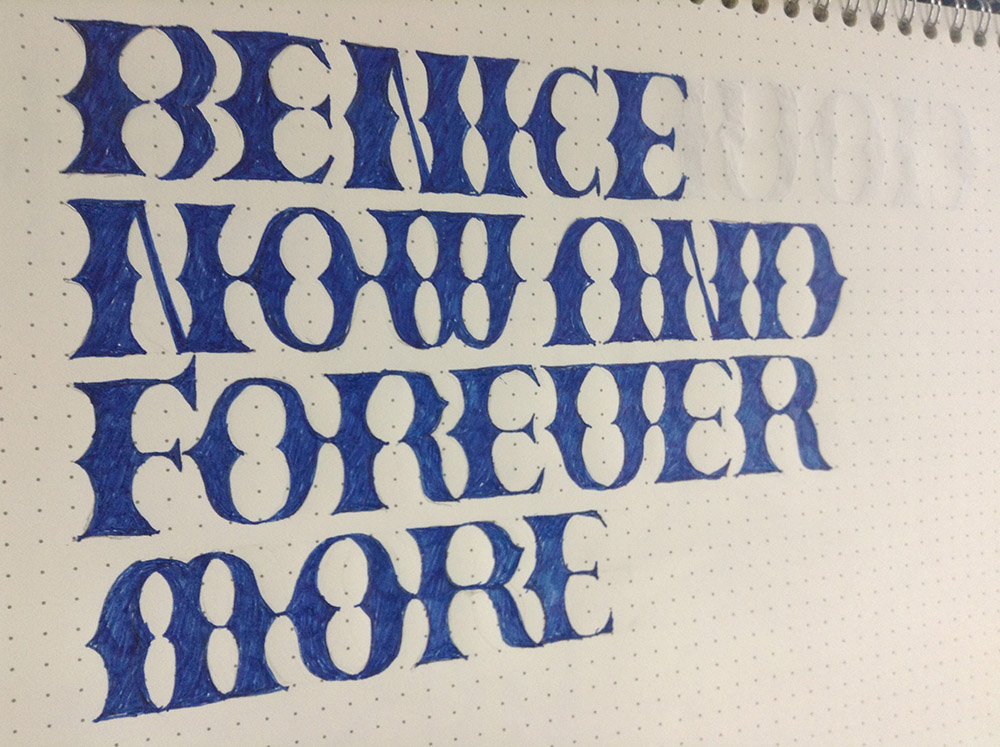 BE NICE
NOW AND
FOREVER
MORE